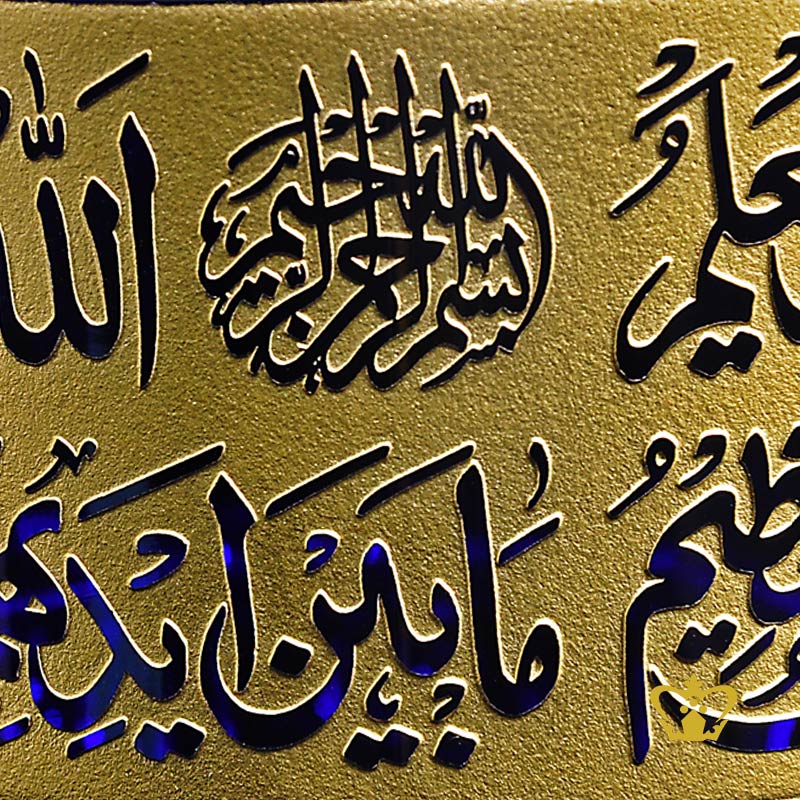 يَعْلَمُ بسم الله الرحمن الرحيم اللّٰهُ
الْعَظِيمُ مَا بَيْنَ اَيْدِيهِمْ